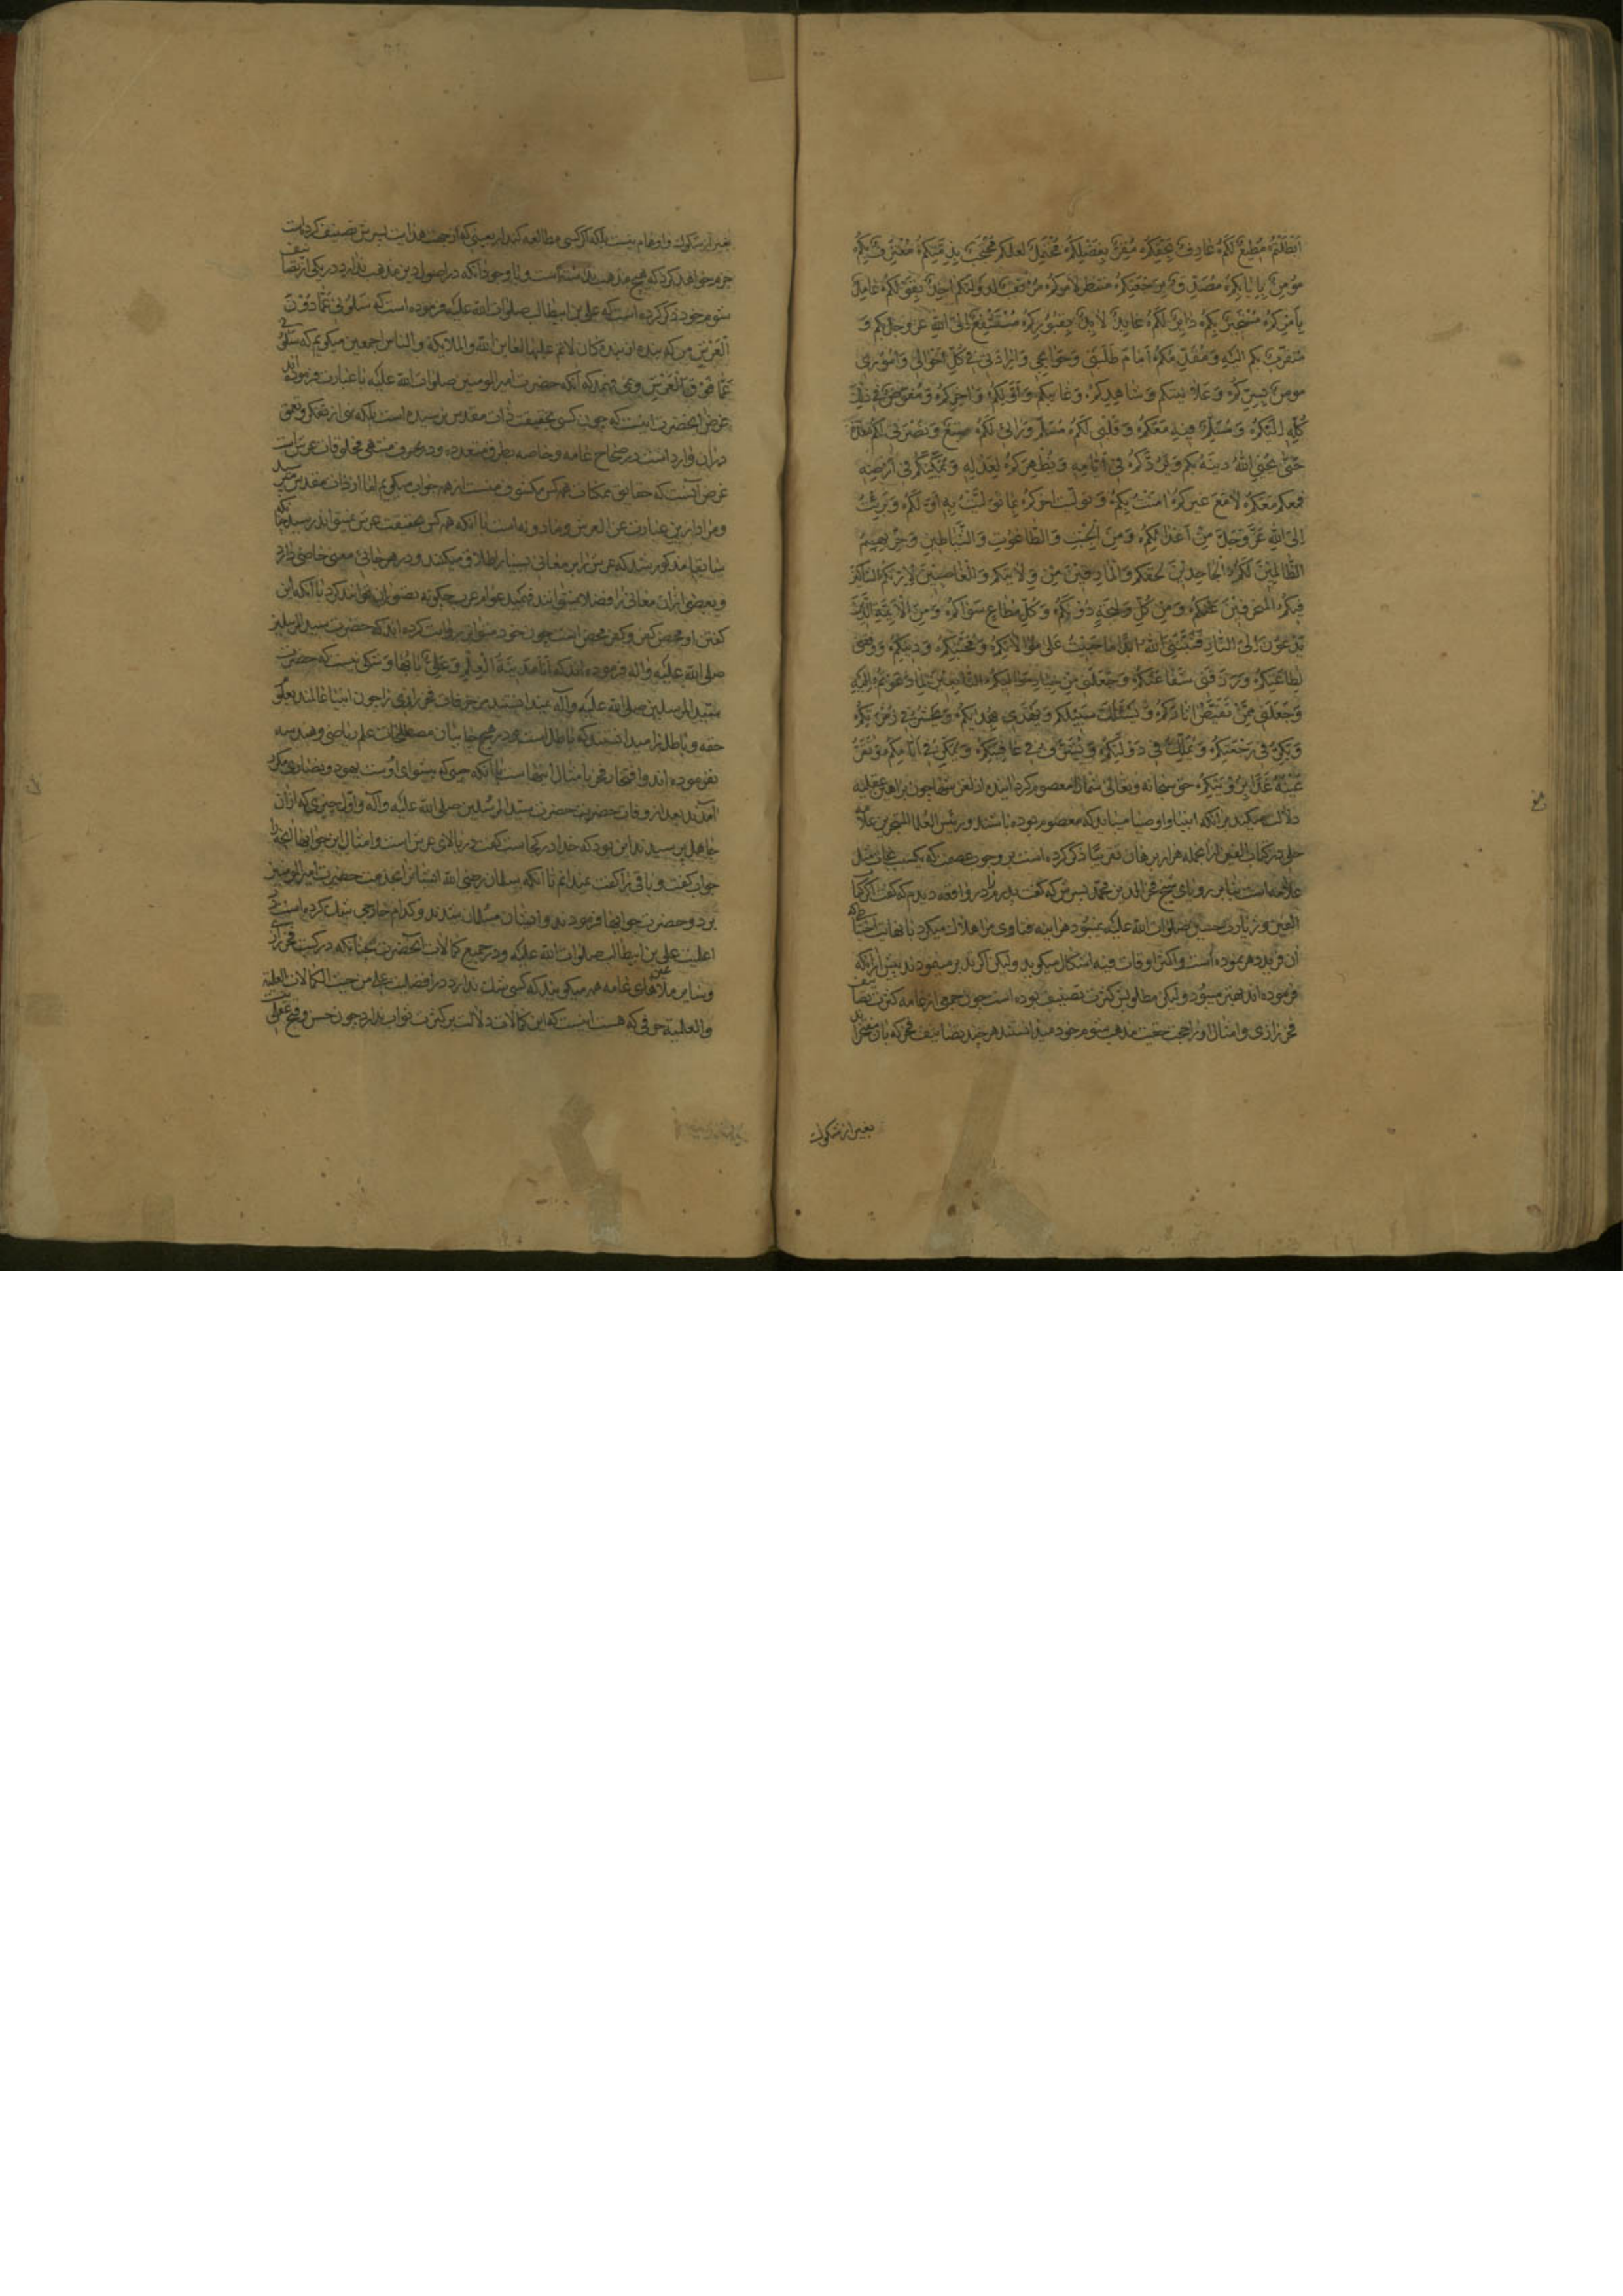 اَبْطَلْتُمْ مُطِيعٌ لَكُمْ عَارِفٌ بِحَقِّكُمْ مُقِرٌّ بِفَضْلِكُمْ مُحْتَمِلٌ لعلمكم مُحْتَجِبٌ بِذِمَّتِكُمْ مُعْتَرِفٌ بِكُمْ
مُؤمِنٌ بِاِيَابِكُمْ مُصَدِّقٌ بِرَجْعَتِكُمْ منتظر لأمركم مرتقب لدولتكم اخِذٌ بِقَوْلِكُمْ عَامِلٌ
بِأَمْرِكُمْ مُسْتَجِيرٌ بِكُمْ زَائِرٌ لَكُمْ عَائِذٌ لائِذٌ بِقُبُورِكُمْ مُسْتَشْفِعٌ اِلَىٰ اللهِ عز وجل بكم وَ
متقرب بكم اليه وَ مُقَدِّمُكُمْ اَمَامَ طَلِبَتِي وَ حَوَائِجِي وَ اِرَادَتِي فِي كُلِّ اَحْوَالِي وَ اُمُورِي
مومن بِسِرِّكُمْ وَ عَلاَنِيَتِكُم وَ شَاهِدِكُمْ وَ غَائِبِكُم وَ اَوَّلِكُمْ وَ اخِرِكُمْ وَ مُفَوِّضٌ فِي ذلِكَ
كُلِّهِ اِلَيْكُمْ وَ مُسَلِّمٌ فِيهِ مَعَكُمْ وَ قَلْبِي لَكُمْ مُسَلِّمٌ وَ رَائِي لَكُمْ تبع وَ نُصْرَتِي لَكُمْ مُعَدَّةٌ
حَتَّىٰ يُحْيِيَ اللهُ دينَهُ بكم وَ يَرُدَّكُمْ فِي اَيَّامِهِ وَ يُظْهِرَكُمْ لِعَدْلِهِ وَ يُمَكِّنَكُمْ فِي اَرْضِهِ
فمعكم مَعَكُمْ لاَ مَعَ غَيْرِكُمْ امَنْتُ بِكُمْ وَ تَوَلَّيْتُ اخركم بِمَا تَوَلَّيْتُ بِهِ اَوَّلَكُمْ وَ بَرِئْتُ
اِلَى اللهِ عَزَّ وَجَلَّ مِنْ اَعْدَائِكُمْ وَ مِنَ الْجِبْتِ وَ الطَّاغُوتِ وَ الشَّيَاطِينِ وَ حِزْبِهِمُ
الظَّالِمِينَ لَكُمْ الْجَاحِدِينَ لحقكم وَ الْمَارِقِينَ مِنْ وَلاَيَتِكُم وَ الْغَاصِبِينَ لاِرْثِكُمْ الشاكين
فيكم الْمُنْحَرِفِينَ عَنْكُمْ وَ مِنْ كُلِّ وَلِيجَةٍ دُونَكُمْ وَ كُلِّ مُطَاعٍ سِوَاكُمْ وَ مِنَ الْاَئِمَّةِ الَّذِينَ
يَدْعُونَ اِلَى النَّارِ فَثَبَّتَنِيَ اللهُ ابدا مَا حَيِيتُ عَلَى مُوَالاَتِكُمْ وَ مَحَبَّتِكُمْ وَ دِينِكُمْ وَ وفقني
لِطَاعَتِكُمْ وَ رَزَقَنِي شَفَاعَتَكُمْ وَ جَعَلَنِي مِنْ خيار مواليكم التَّابِعِينَ لِمَا دَعَوْتُمْ اِلَيْهِ
وَ جَعَلَنِي مِمَّنْ يَقْتَصُّ اثَارَكُمْ وَ يَسْلُكُ سَبِيلَكُم وَ يَهْتَدِي بِهُدَيكُمْ وَ يُحْشَرُ فِي زُمْرَتِكُمْ
وَ يَكِرُّ فِي رَجْعَتِكُمْ وَ يُمَلَّكُ فِي دَوْلَتِكُمْ وَ يُشَرَّفُ فِي عَافِيَتِكُمْ وَ يُمَكَّنُ فِي اَيَّامِكُمْ وَ تَقَرُّ
عَيْنُهُ غَدًا بِرُؤْيَتِكُمْ حق سبحانه وتعالى شما را معصوم كردانيده از لغزشها چون براهين عقليه
دلالت ميكند بر آنكه انبيا و اوصيا ميبايد كه معصوم بوده باشند و رئيس العلما المتبحرين علامه
حلي در كتاب الفين از آنجمله هزار برهان تقريبا ذكر كرده است بر وجوب عصمت كه بسبب نجات
علامه است بنابر روياي شيخ فخر الدين محمد پسرش كه گفت پدرم را در واقعه ديدم كه گفت اگر كتاب
الفين و زيارت حسين صلوات الله عليه نميبود هر آينه فتاوى مرا هلاك ميكرد با نهايت احتياط
فرموده اند بهتر ميبود وليكن مطلوبش كثرت تصنيف بوده است چون جمعى از عامه كثرت تصانيف
فخر رازى و امثال او را حجت حقيت مذهب شوم خود ميدانستند هر چند تصانيف فخر كه
بغير از شكوك
بغير از شكوك و اوهام نيست بلكه اگر كسى مطالعه كند اربعينى كه از جهت هدايت پسرش تصنيف كرده است
جزم خواهد كرد كه هيچ مذهب نداشته است و با وجود آنكه در اصول دين مذهب ندارد در يكى از تصانيف
شوم خود ذكر كرده است كه على بن ابيطالب صلوات الله عليه فرموده است كه سَلُونِي عَمَّا دُونَ
الْعَرْشِ من كه بنده آن بنده كان لائم عليهما لعاين الله والملايكة والناس اجمعين ميگويم كه سلوني
عَمَّا فَوْقَ الْعَرْشِ و نمى فهمد كه آنكه حضرت امير المومنين صلوات الله عليه با عبارت فرموده اند
غرض آنحضرت اينست كه چون كسى بحقيقت ذات مقدس نرسيده است بلكه نهى از تفكر و تعمق
در آن وارد است در صحاح عامه و خاصه بطرق متعدده و در معرفت منتهى مخلوقات عرش است
غرض آنست كه حقايق ممكنات همه بر من مكشوف است از همه جواب ميگويم اما از ذات مقدس مپرسيد
و مراد ازين عبارت عن العرش و ما دونه است با آنكه همه كس بحقيقت عرش نميتواند رسيد چنانكه
سابقا مذكور شد كه عرش را بر معانى بسيار اطلاق ميكنند و در هر جائى معنى خاصى دارد
و بعضى از آن معانى را فضلا نميتوانند فهميد عوام عرب چگونه تصور آن توانند كرد با آنكه اين
گفتن او محض كفر و كفر محض است چون خود متواتر روايت كرده اند كه حضرت سيد المرسلين
صلى الله عليه واله فرموده اند كه اَنَا مَدِينَةُ الْعِلْمِ وَ عَلِيٌّ بَابُهَا و شكى نيست كه حضرت
سيد المرسلين صلى الله عليه وآله نميدانستند مزخرفات فخر رازى را چون انبيا عالمند بعلوم
حقه و باطل را ميدانستند كه باطل است و در هيچ جا بيان مصطلحات علم رياضى و هندسه
نفرموده اند و افتخار فخر بامثال اينهاست با آنكه حينى كه پيشواى اوست يهود و نصارى مكرر
آمدند بعد از وفات حضرت سيد المرسلين صلى الله عليه وآله و اول چيزى كه از آن
جاهل پرسيدند اين بود كه خدا در كجاست گفت در بالاى عرش است و امثال اين جوابها
جواب گفت و باقى را گفت نميدانم تا آنكه سلمان رضى الله ايشانرا بخدمت حضرت امير المومنين
برد و حضرت جوابها فرمودند و ايشان مسلمان شدند و كدام خارجى شك كرده است در
اعلميت على بن ابيطالب صلوات الله عليه و در جميع كمالات آنحضرت چنانكه در كتب فخر رازى
و ساير ملاهاى عامه همه ميگويند كه كسى شك ندارد در افضليت على من حيث الكمالات العلمية
والعملية حرفى كه هست اينست كه اين كمالات دلالت بر كثرت ثواب ندارد چون حسن و قبح عقلى